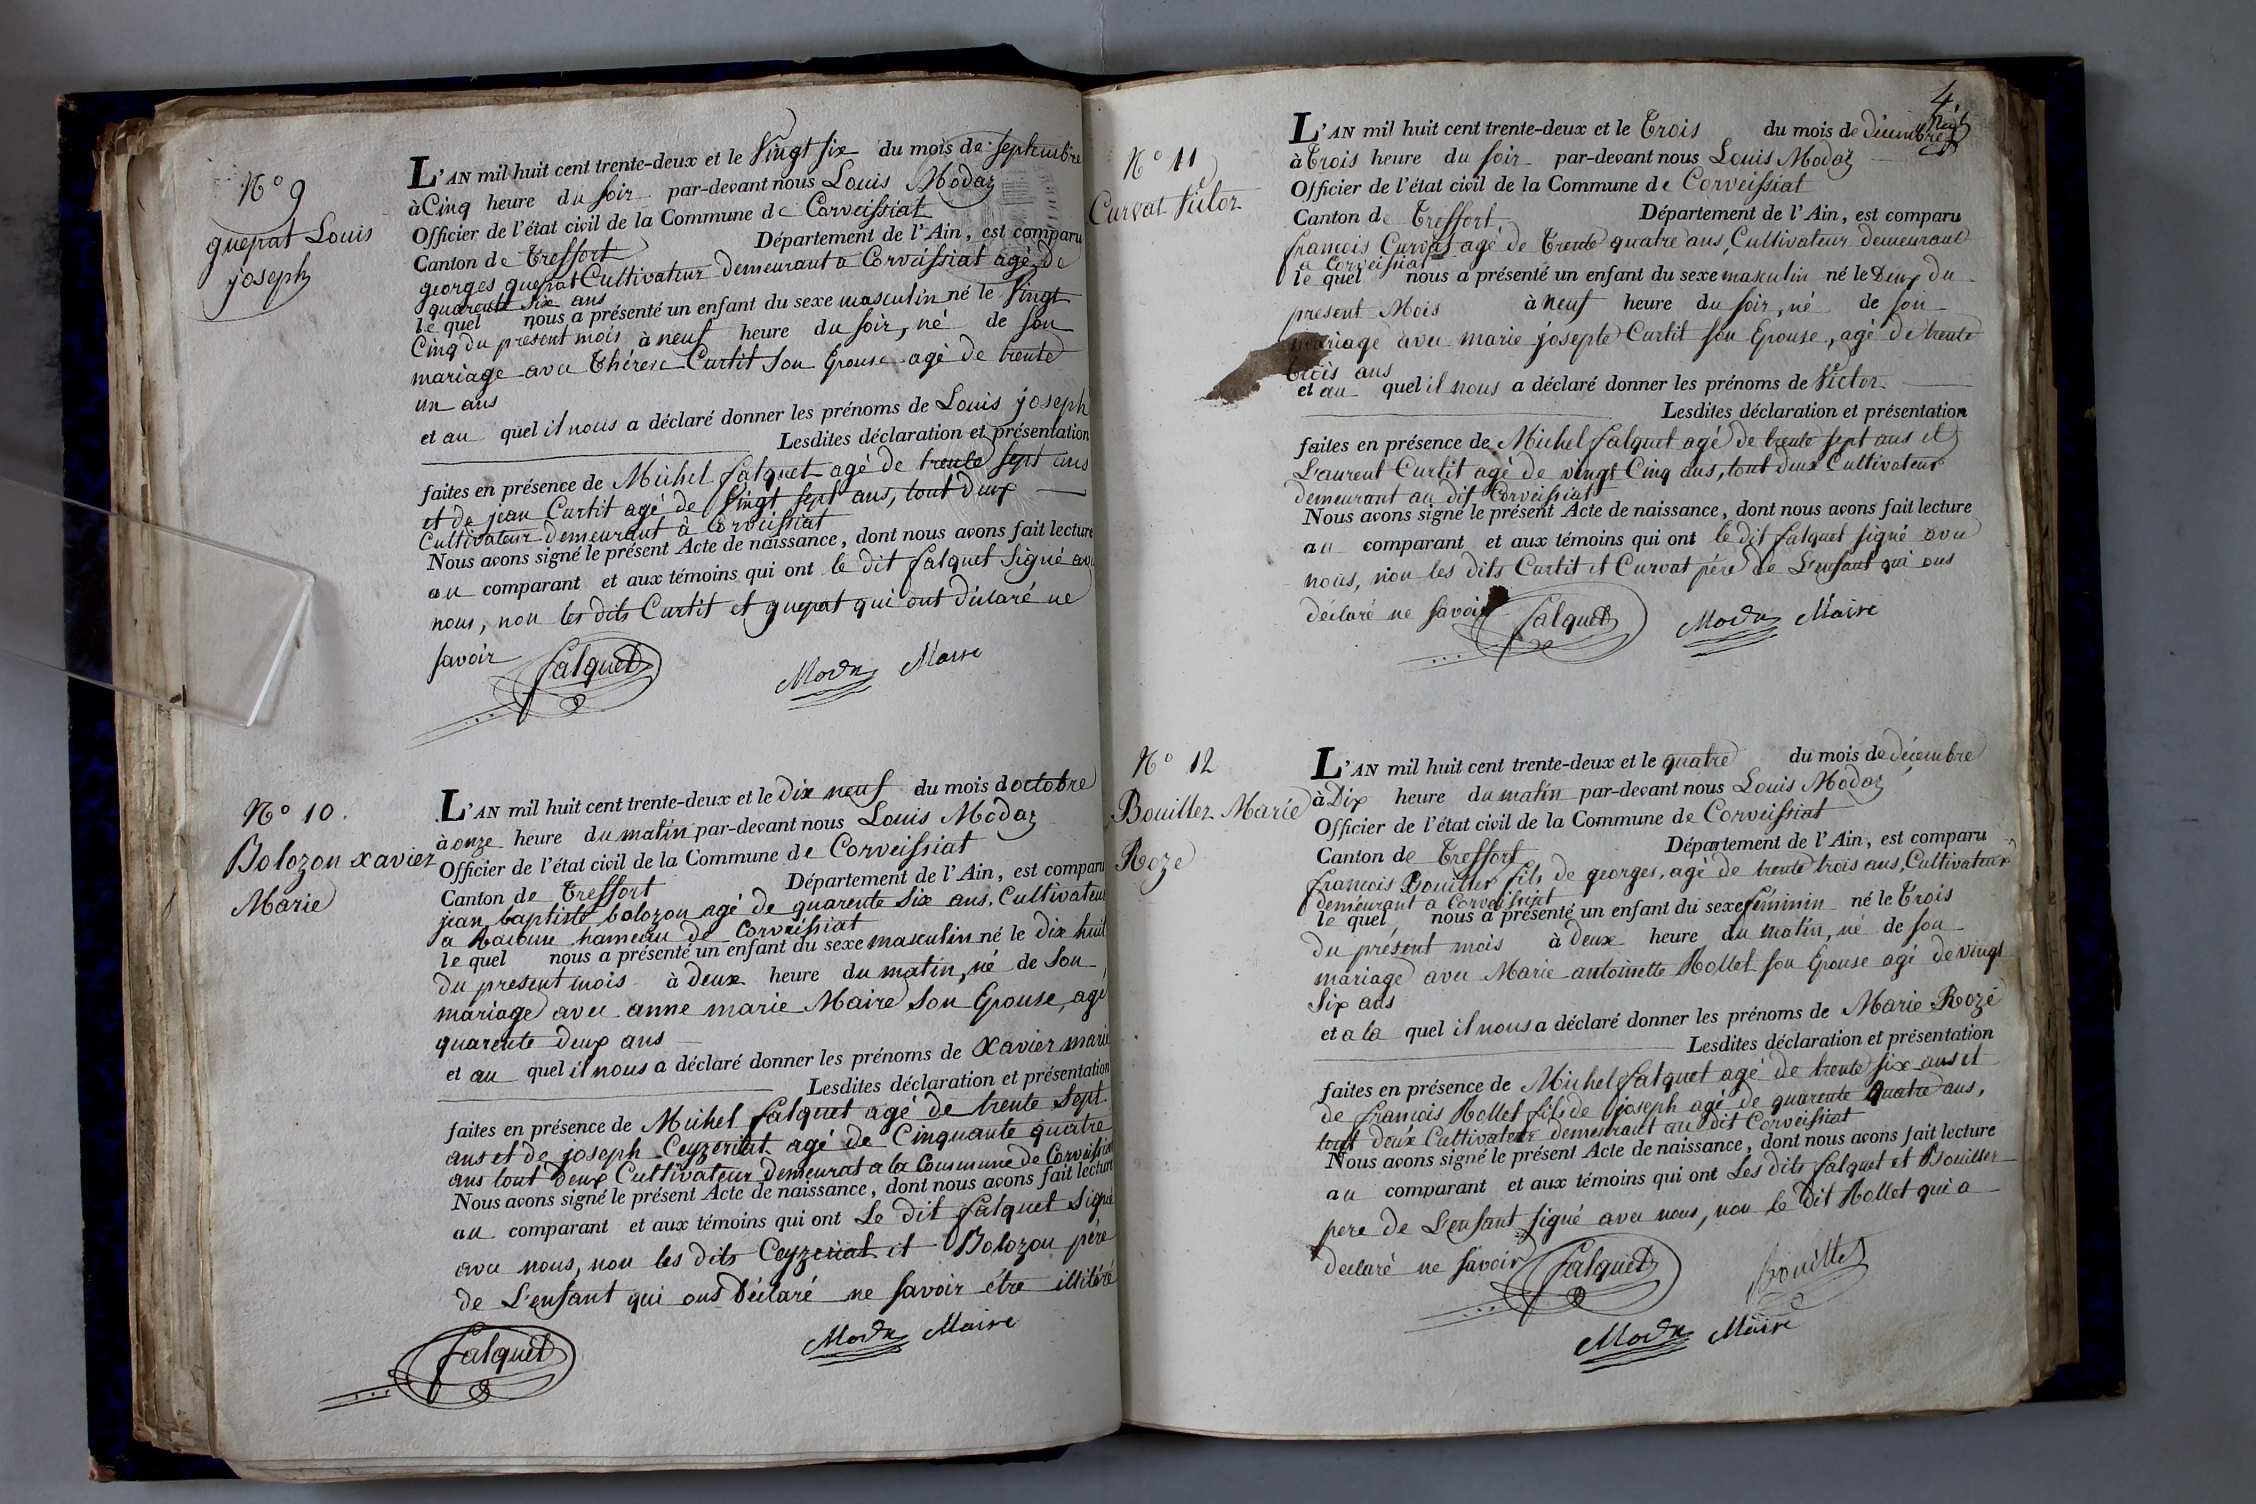 N° 9
guepat Louis
joseph
L'AN mil huit cent trente-deux et le Vingt six du mois de septembre
à Cinq heure du soir par-devant nous Louis Modaz
Officier de l'état civil de la Commune de Corveissiat
Canton de Treffort Département de l'Ain, est comparu
georges guepat Cultivateur demeurant a Corveissiat agé de
quarente six ans
le quel nous a présenté un enfant du sexe masculin né le Vingt
Cinq du present mois à neuf heure du soir, né de son
mariage avec Thérese Curtit son Epouse agé de trente
un ans
et au quel il nous a déclaré donner les prénoms de Louis joseph
Lesdites déclaration et présentation
faites en présence de Michel falquet agé de trente sept ans
et de jean Curtit agé de Vingt sept ans, tout deux
Cultivateur demeurant à Corveissiat
Nous avons signé le présent Acte de naissance, dont nous avons fait lecture
au comparant et aux témoins qui ont le dit falquet signé avec
nous, non les dits Curtit et guepat qui ont déclaré ne
savoir
falquet Modaz Maire
N° 10.
Bolozon xavier
Marie
L'AN mil huit cent trente-deux et le dix neuf du mois d'octobre
à onze heure du matin par-devant nous Louis Modaz
Officier de l'état civil de la Commune de Corveissiat
Canton de Treffort Département de l'Ain, est comparu
jean baptiste bolozon agé de quarente six ans, Cultivateur
a hameau de Corveissiat
le quel nous a présenté un enfant du sexe masculin né le dix huit
du present mois à deux heure du matin, né de son
mariage avec anne marie Maire son Epouse, agé
quarente deux ans
et au quel il nous a déclaré donner les prénoms de Xavier marie
Lesdites déclaration et présentation
faites en présence de Michel falquet agé de trente sept
ans et de joseph Ceyzeriat agé de Cinquante quatre
ans tout deux Cultivateur demeurat a la Commune de Corveissiat
Nous avons signé le présent Acte de naissance, dont nous avons fait lecture
au comparant et aux témoins qui ont Le dit falquet signé
avec nous, non les dits Ceyzeriat et Bolozon père
de L'enfant qui ons déclaré ne savoir étre illitéré
falquet Modaz Maire
4
N° 11
Curvat Victor
L'AN mil huit cent trente-deux et le Trois du mois de décembre
à Trois heure du soir par-devant nous Louis Modaz
Officier de l'état civil de la Commune de Corveissiat
Canton de Treffort Département de l'Ain, est comparu
francois Curvat agé de Trente quatre ans, Cultivateur demeurant
a Corveissiat
le quel nous a présenté un enfant du sexe masculin né le Deux du
present Mois à neuf heure du soir, né de son
mariage avec marie josepte Curtit son Epouse, agé de trente
trois ans
et au quel il nous a déclaré donner les prénoms de Victor
Lesdites déclaration et présentation
faites en présence de Michel falquet agé de trente sept ans et
Laurent Curtit agé de vingt Cinq ans, tout deux Cultivateur
demeurant au dit Corveissiat
Nous avons signé le présent Acte de naissance, dont nous avons fait lecture
au comparant et aux témoins qui ont le dit falquet signé avec
nous, non les dits Curtit et Curvat pére de L'enfant qui ons
déclaré ne savoir
falquet Modaz Maire
N° 12
Bouiller Marie
Roze
L'AN mil huit cent trente-deux et le quatre du mois de décembre
à Dix heure du matin par-devant nous Louis Modaz
Officier de l'état civil de la Commune de Corveissiat
Canton de Treffort Département de l'Ain, est comparu
francois Bouiller fils de georges, agé de trente trois ans, Cultivateur
demeurant a Corveissiat
le quel nous a présenté un enfant du sexe féminin né le Trois
du présent mois à deux heure du matin, né de son
mariage avec Marie antoinette Rollet son Epouse agé de vingt
six ans
et a la quel il nous a déclaré donner les prénoms de Marie Rozé
Lesdites déclaration et présentation
faites en présence de Michel falquet agé de trente six ans et
de françois Rollet fils de joseph agé de quarente quatre ans,
tout deux Cultivateur demeurant au dit Corveissiat
Nous avons signé le présent Acte de naissance, dont nous avons fait lecture
au comparant et aux témoins qui ont Les dits falquet et Bouiller
pere de L'enfant signé avec nous, non le dit Rollet qui a
declaré ne savoir
falquet Bouiller
Modaz Maire